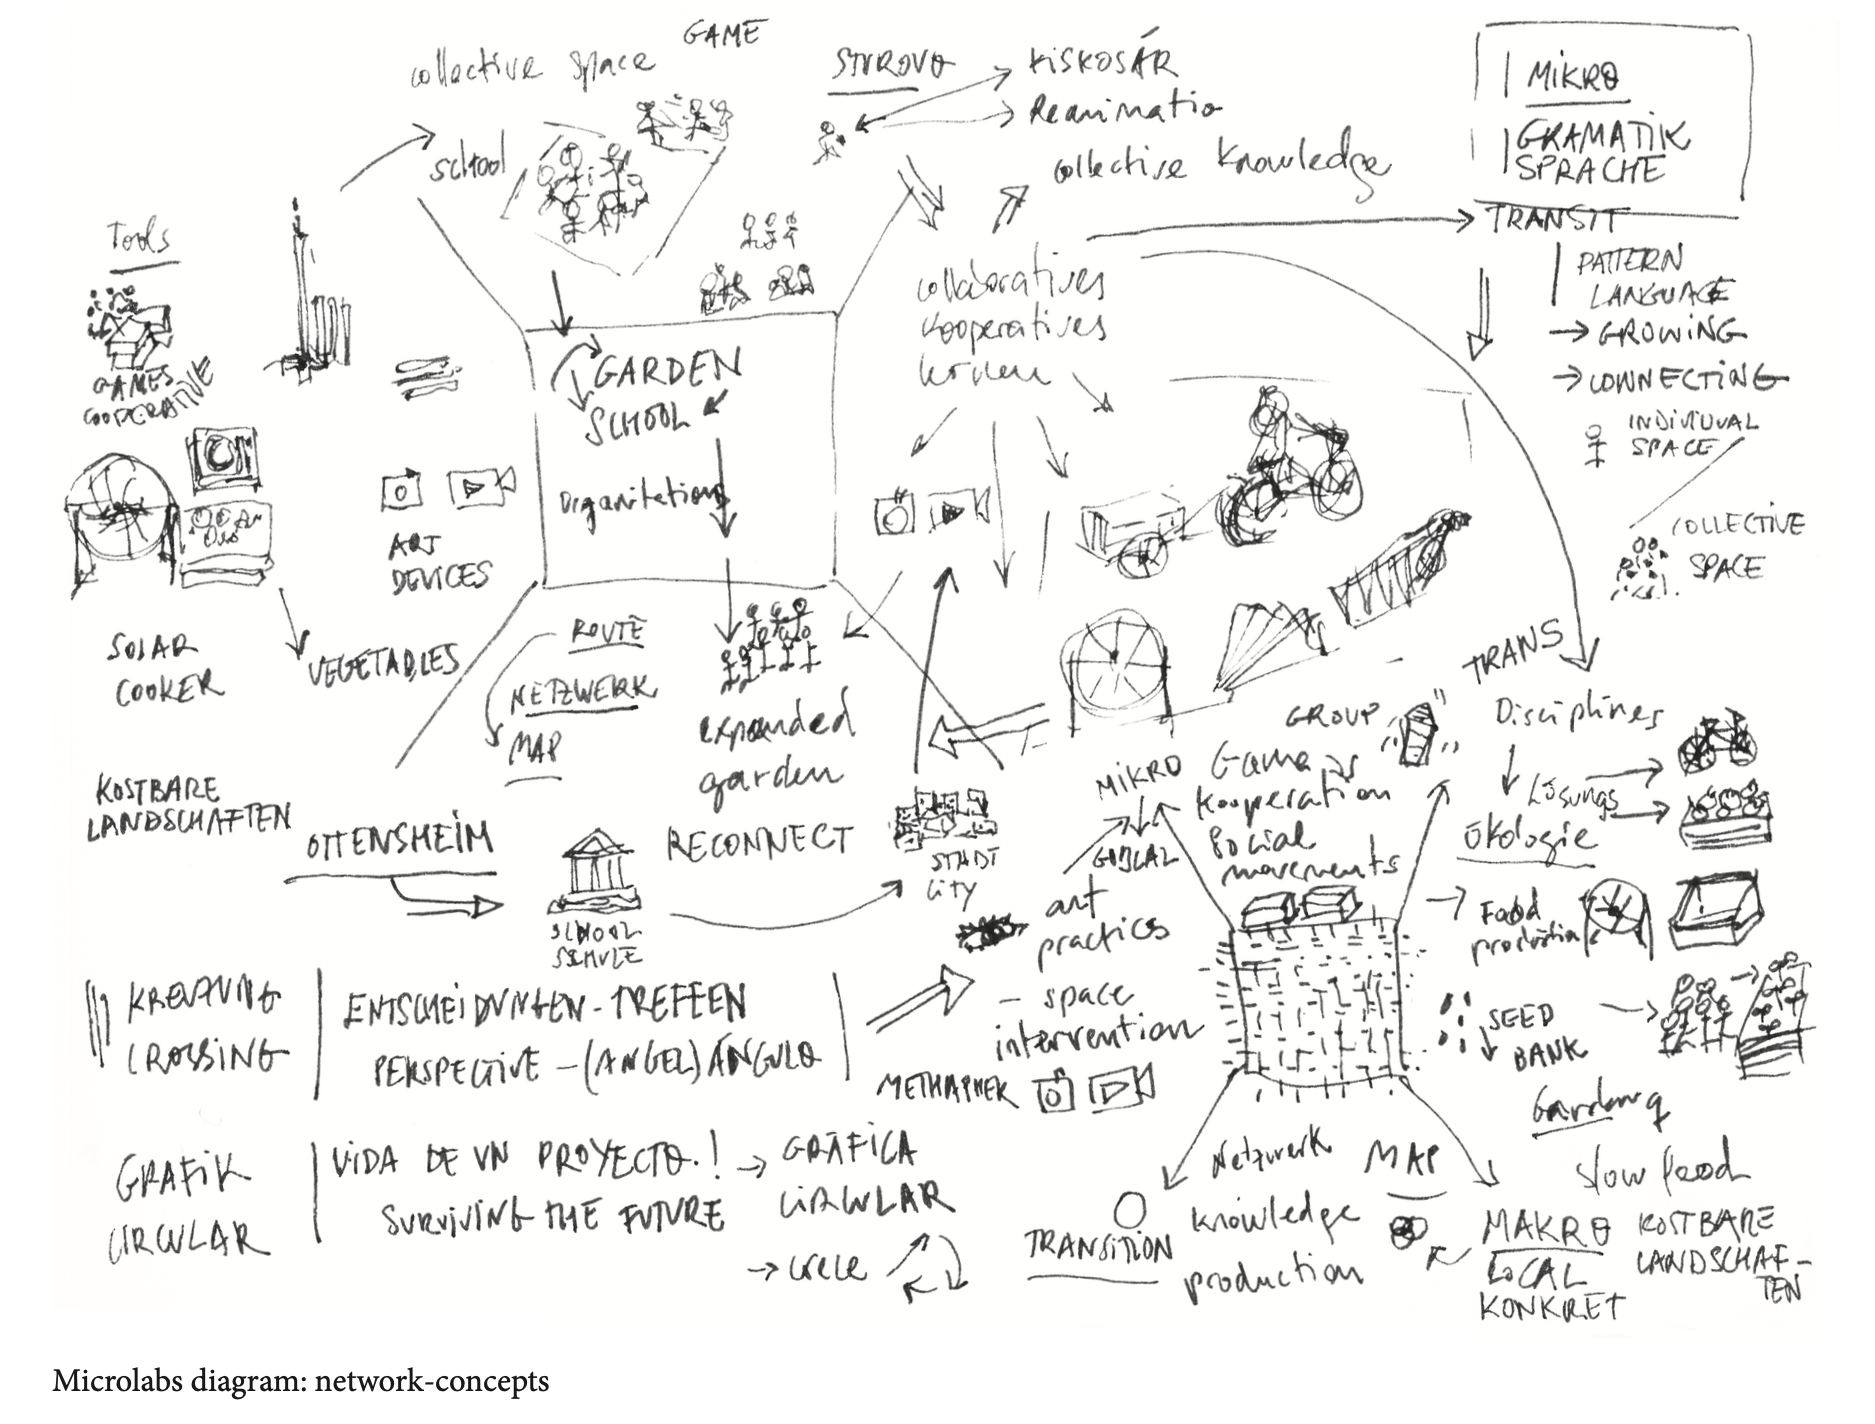 GAME
collective space
school
STUROVO
KISKOSÁR
Reanimatio
collective knowledge
MIKRO
GRAMATIK
SPRACHE
TRANSIT
PATTERN
LANGUAGE
→ GROWING
→ CONNECTING
INDIVIDUAL
SPACE
COLLECTIVE
SPACE
Tools
GAMES
COOPERATIVE
SOLAR
COOKER
VEGETABLES
ART
DEVICES
GARDEN
SCHOOL
Organitation
collaboratives
kooperatives
ROUTE
NETZWERK
MAP
expanded
garden
KOSTBARE
LANDSCHAFTEN
OTTENSHEIM
SCHOOL
SCHULE
RECONNECT
STADT
City
TRANS
Disciplines
Lösungs
Ökologie
Food
production
SEED
BANK
GROUP
MIKRO
GLOBAL
Game
Kooperation
Social
movements
art
practics
- space
intervention
METHAPHER
KREUZUNG
CROSSING
ENTSCHEIDUNGEN - TREFFEN
PERSPECTIVE - (ANGEL) ÁNGULO
GRAFIK
CIRCULAR
VIDA DE UN PROYECTO.!
SURVIVING THE FUTURE
→ GRÁFICA
CIRCULAR
TRANSITION
Netzwerk
MAP
knowledge
production
slow food
MAKRO
LOCAL
KONKRET
KOSTBARE
LANDSCHAF-
TEN
Microlabs diagram: network-concepts